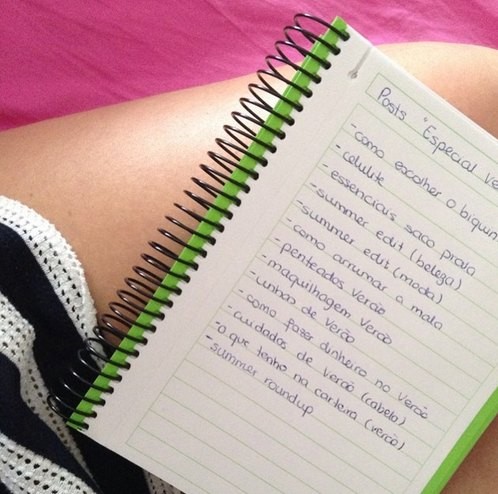 Posts "Especial Ve
- como escolher o biquin
- celulite
- essenciais saco praia
- summer edit (beleza)
- summer edit (moda)
- como arrumar a mala
- penteados verão
- maquilhagem verão
- unhas de verão
- como fazer dinheiro no verão
- cuidados de verão (cabelo)
- o que tenho na carteira (verão)
- summer roundup